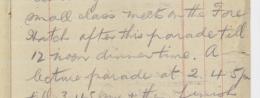 small class meet on the Fore
Hatch after this parade till
12 noon dinner time. A
lecture parade at 2.45 pm
till 3.45 pm & the